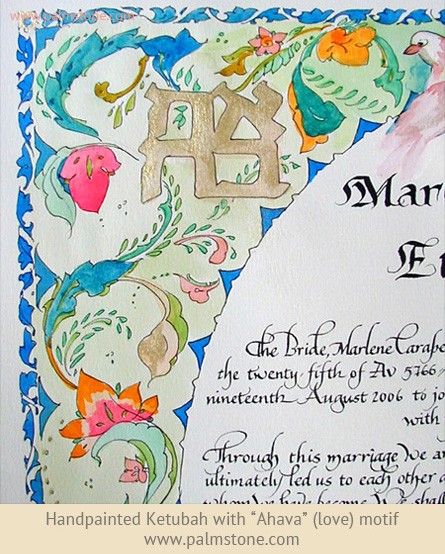 www.palmstone.com
Mar
E
The Bride, Marlene Carabe
the twenty fifth of Av 5766
nineteenth August 2006 to jo
with
Through this marriage we ar
ultimately led us to each other a
whom we have become. We shall
Handpainted Ketubah with “Ahava” (love) motif
www.palmstone.com